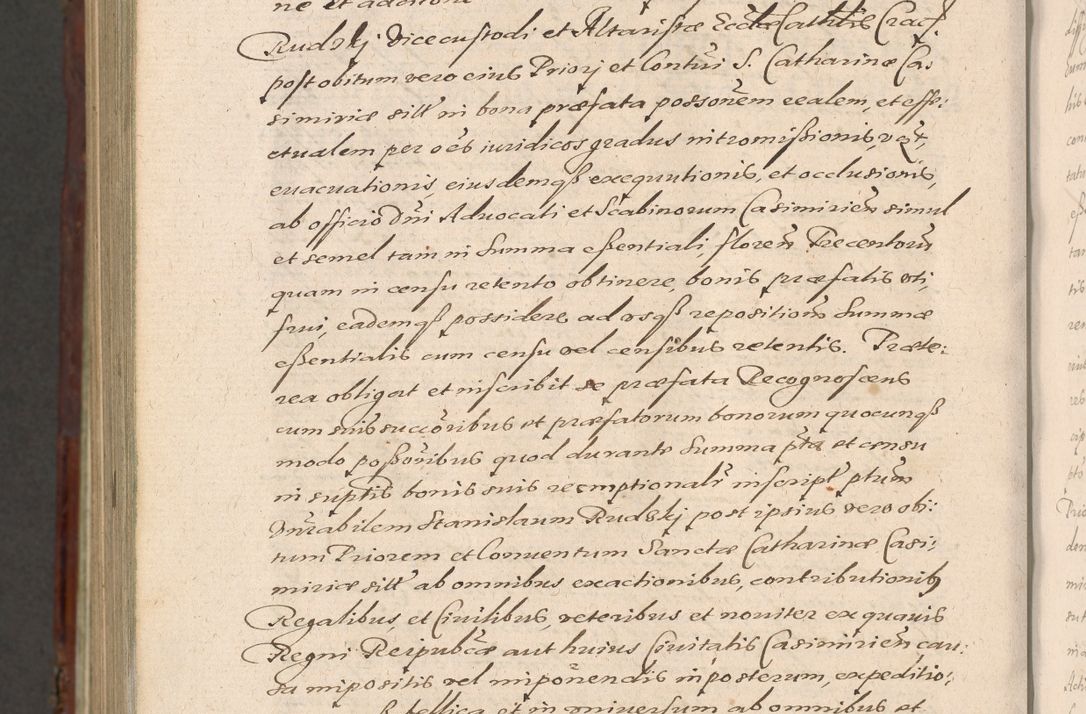 ne et additione
Rudskj Vicecustodi et Altaristæ Eccłæ Cathlis Crac̃.
post obitum vero eius Priorj et Contũi S. Catharinæ Ca⸗
simiriæ siłł in bona præfata possonẽm realem, et effe⸗
ctualem per oẽs iuridicos gradus intromißionis,
euacuationis eiusdemqß exequutionis, et occlusionis,
ab officio Dnĩ Aduocati et Scabinorum Casimirieñ simul
et semel tam in Summa eßentiali, floreñ Trecentorũ
quam in censu retento obtinere, bonis præfatis uti,
frui, eademqß possidere ad usqß repositionẽ Summæ
eßentialis cum censu vel censibus retentis. Præte⸗
rea obligat et inscribit se præfata Recognoscens
cum suis succõribus et præfatorum bonorum quocunqß
modo poßõribus quod durante Summa ptã et censu
in suptis bonis suis reemptionalĩ inscripł ptum̃
Vnrabilem Stanislaum Rudskj post ipsius vero obi⸗
tum Priorem et Conuentum Sanctæ Catharinæ Casi⸗
miriæ siłł ab omnibus exactionibus, contributionibus
Regalibus et Ciuilibus, veteribus et nouiter ex quauis
Regni Reipubcæ aut huius Ciuitatis Casimirieñ cau⸗
sa impositis vel imponẽndis in posterum, expeditio⸗
bellica et in vniuersum ab omnibus et